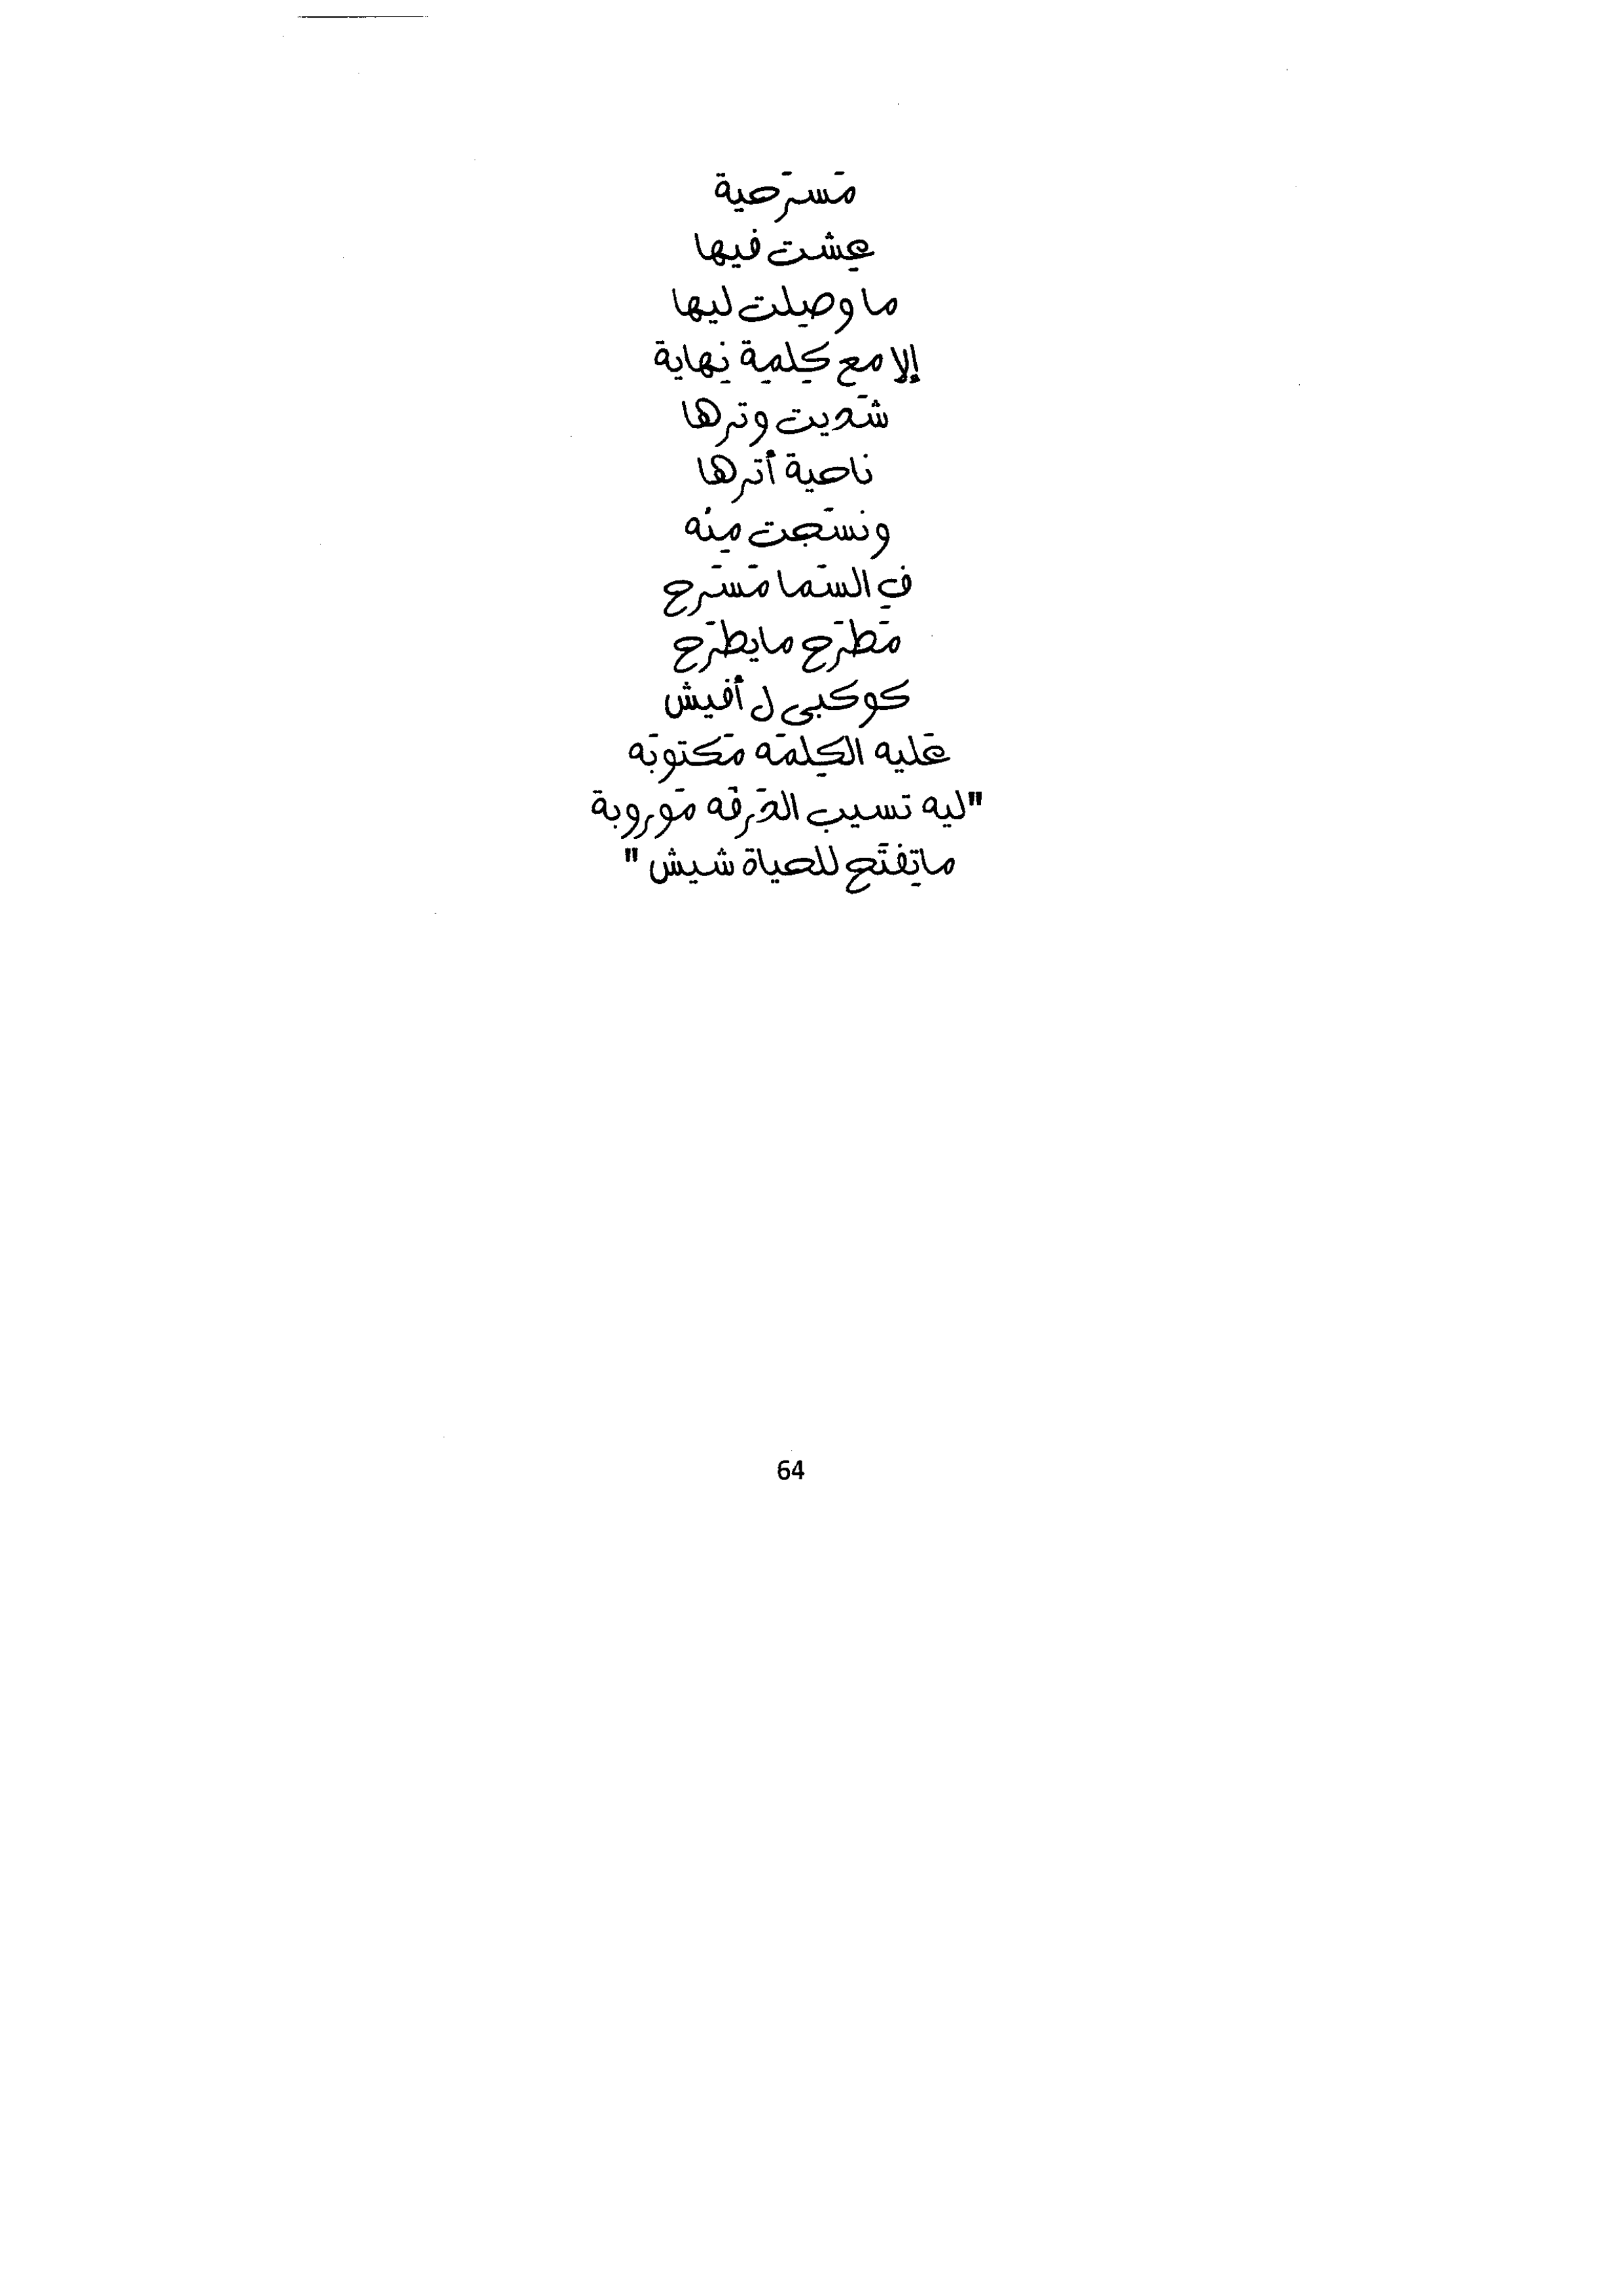 مَسرَحية
عِشت فيها
ما وصِلت ليها
إلا مع كِلمِة نِهاية
شَديت وترها
ناحية أترها
ونسَجت مِنُه
فِ السَما مَسَرح
مَطرَح مايطرَح
كوكبى ل أفيش
عَليه الكِلمَه مَكتوبَه
"ليه تسيب الحَرقَه مَوروبة
ماتِفتَح للحياة شيش"
64